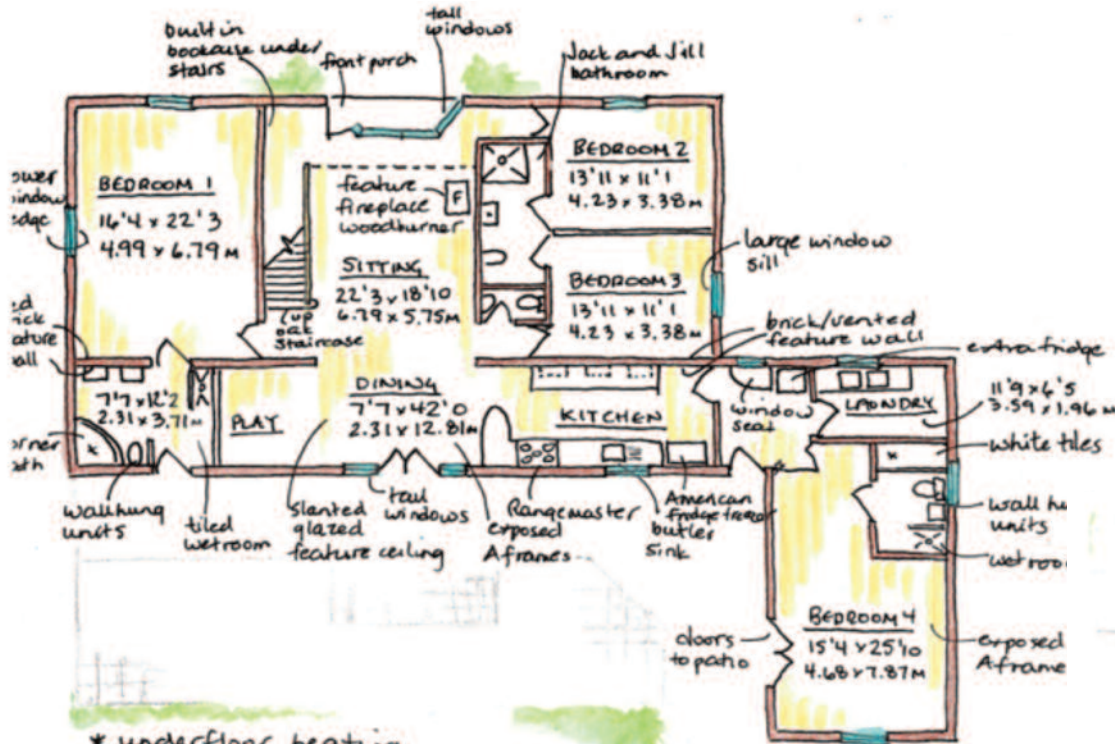 built in
bookcase under
stairs
front porch
tall
windows
Jack and Jill
bathroom
BEDROOM 1
16'4 x 22'3
4.99 x 6.79 M
feature
fireplace
woodburner
F
BEDROOM 2
13'11 x 11'1
4.23 x 3.38 M
SITTING
22'3 x 18'10
6.79 x 5.75 M
up
oak
staircase
BEDROOM 3
13'11 x 11'1
4.23 x 3.38 M
large window
sill
brick/vented
feature wall
extra fridge
7'7 x 12'2
2.31 x 3.71 M
PLAY
DINING
7'7 x 42'0
2.31 x 12.81 M
KITCHEN
window
seat
LAUNDRY
11'9 x 6'5
3.59 x 1.96 M
white tiles
wall hung
units
tiled
wetroom
slanted
glazed
feature ceiling
tall
windows
exposed
A frames
Rangemaster
butler
sink
American
fridge freezer
wall hu
units
wet roo
BEDROOM 4
15'4 x 25'10
4.68 x 7.87 M
doors
to patio
exposed
A frame